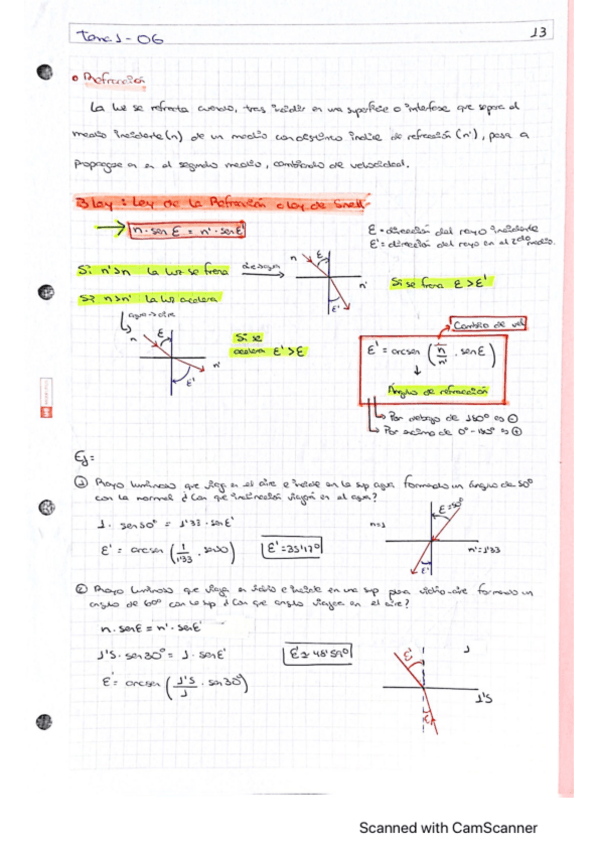 Tema 1 - 06
13
• Refracción
La luz se refracta cuando, tras incidir en una superficie o interfase que separa el
medio incidente (n) de un medio con distinto índice de refracción (n'), pasa a
propagarse en el segundo medio, cambiando de velocidad.
3 Ley: Ley de la Refracción o Ley de Snell
→ n · sen ε = n' · sen ε'
ε = dirección del rayo incidente
ε' = dirección del rayo en el 2do medio.
Si n'>n la luz se frena
aire → agua
n
ε
n'
ε'
Si se frena ε > ε'
Si n>n' la luz acelera
agua → aire
n
ε
n'
ε'
Si se
acelera ε' > ε
Cambio de vel
ε' = arcsen (n/n' · sen ε)
Ángulo de refracción
Por debajo de 180º ⇒ ⊖
Por encima de 0º-180º ⇒ ⊕
Ej:
① Rayo luminoso que viaja en el aire e incide en la sup agua formando un ángulo de 50º
con la normal ¿Con que inclinación viajará en el agua?
1 · sen50º = 1'33 · sen ε'
ε' = arcsen (1/1'33 · sen50)
ε' = 35'17º
n=1
ε=50º
n'=1'33
ε'
② Rayo luminoso que viaja en vidrio e incide en una sup plana vidrio-aire formando un
ángulo de 60º con la sup ¿Con que ángulo viajara en el aire?
n · sen ε = n' · sen ε'
1'5 · sen30º = 1 · sen ε'
ε' = arcsen (1'5/1 · sen30º)
ε' = 48'59º
ε'
1
1'5
ε
Scanned with CamScanner